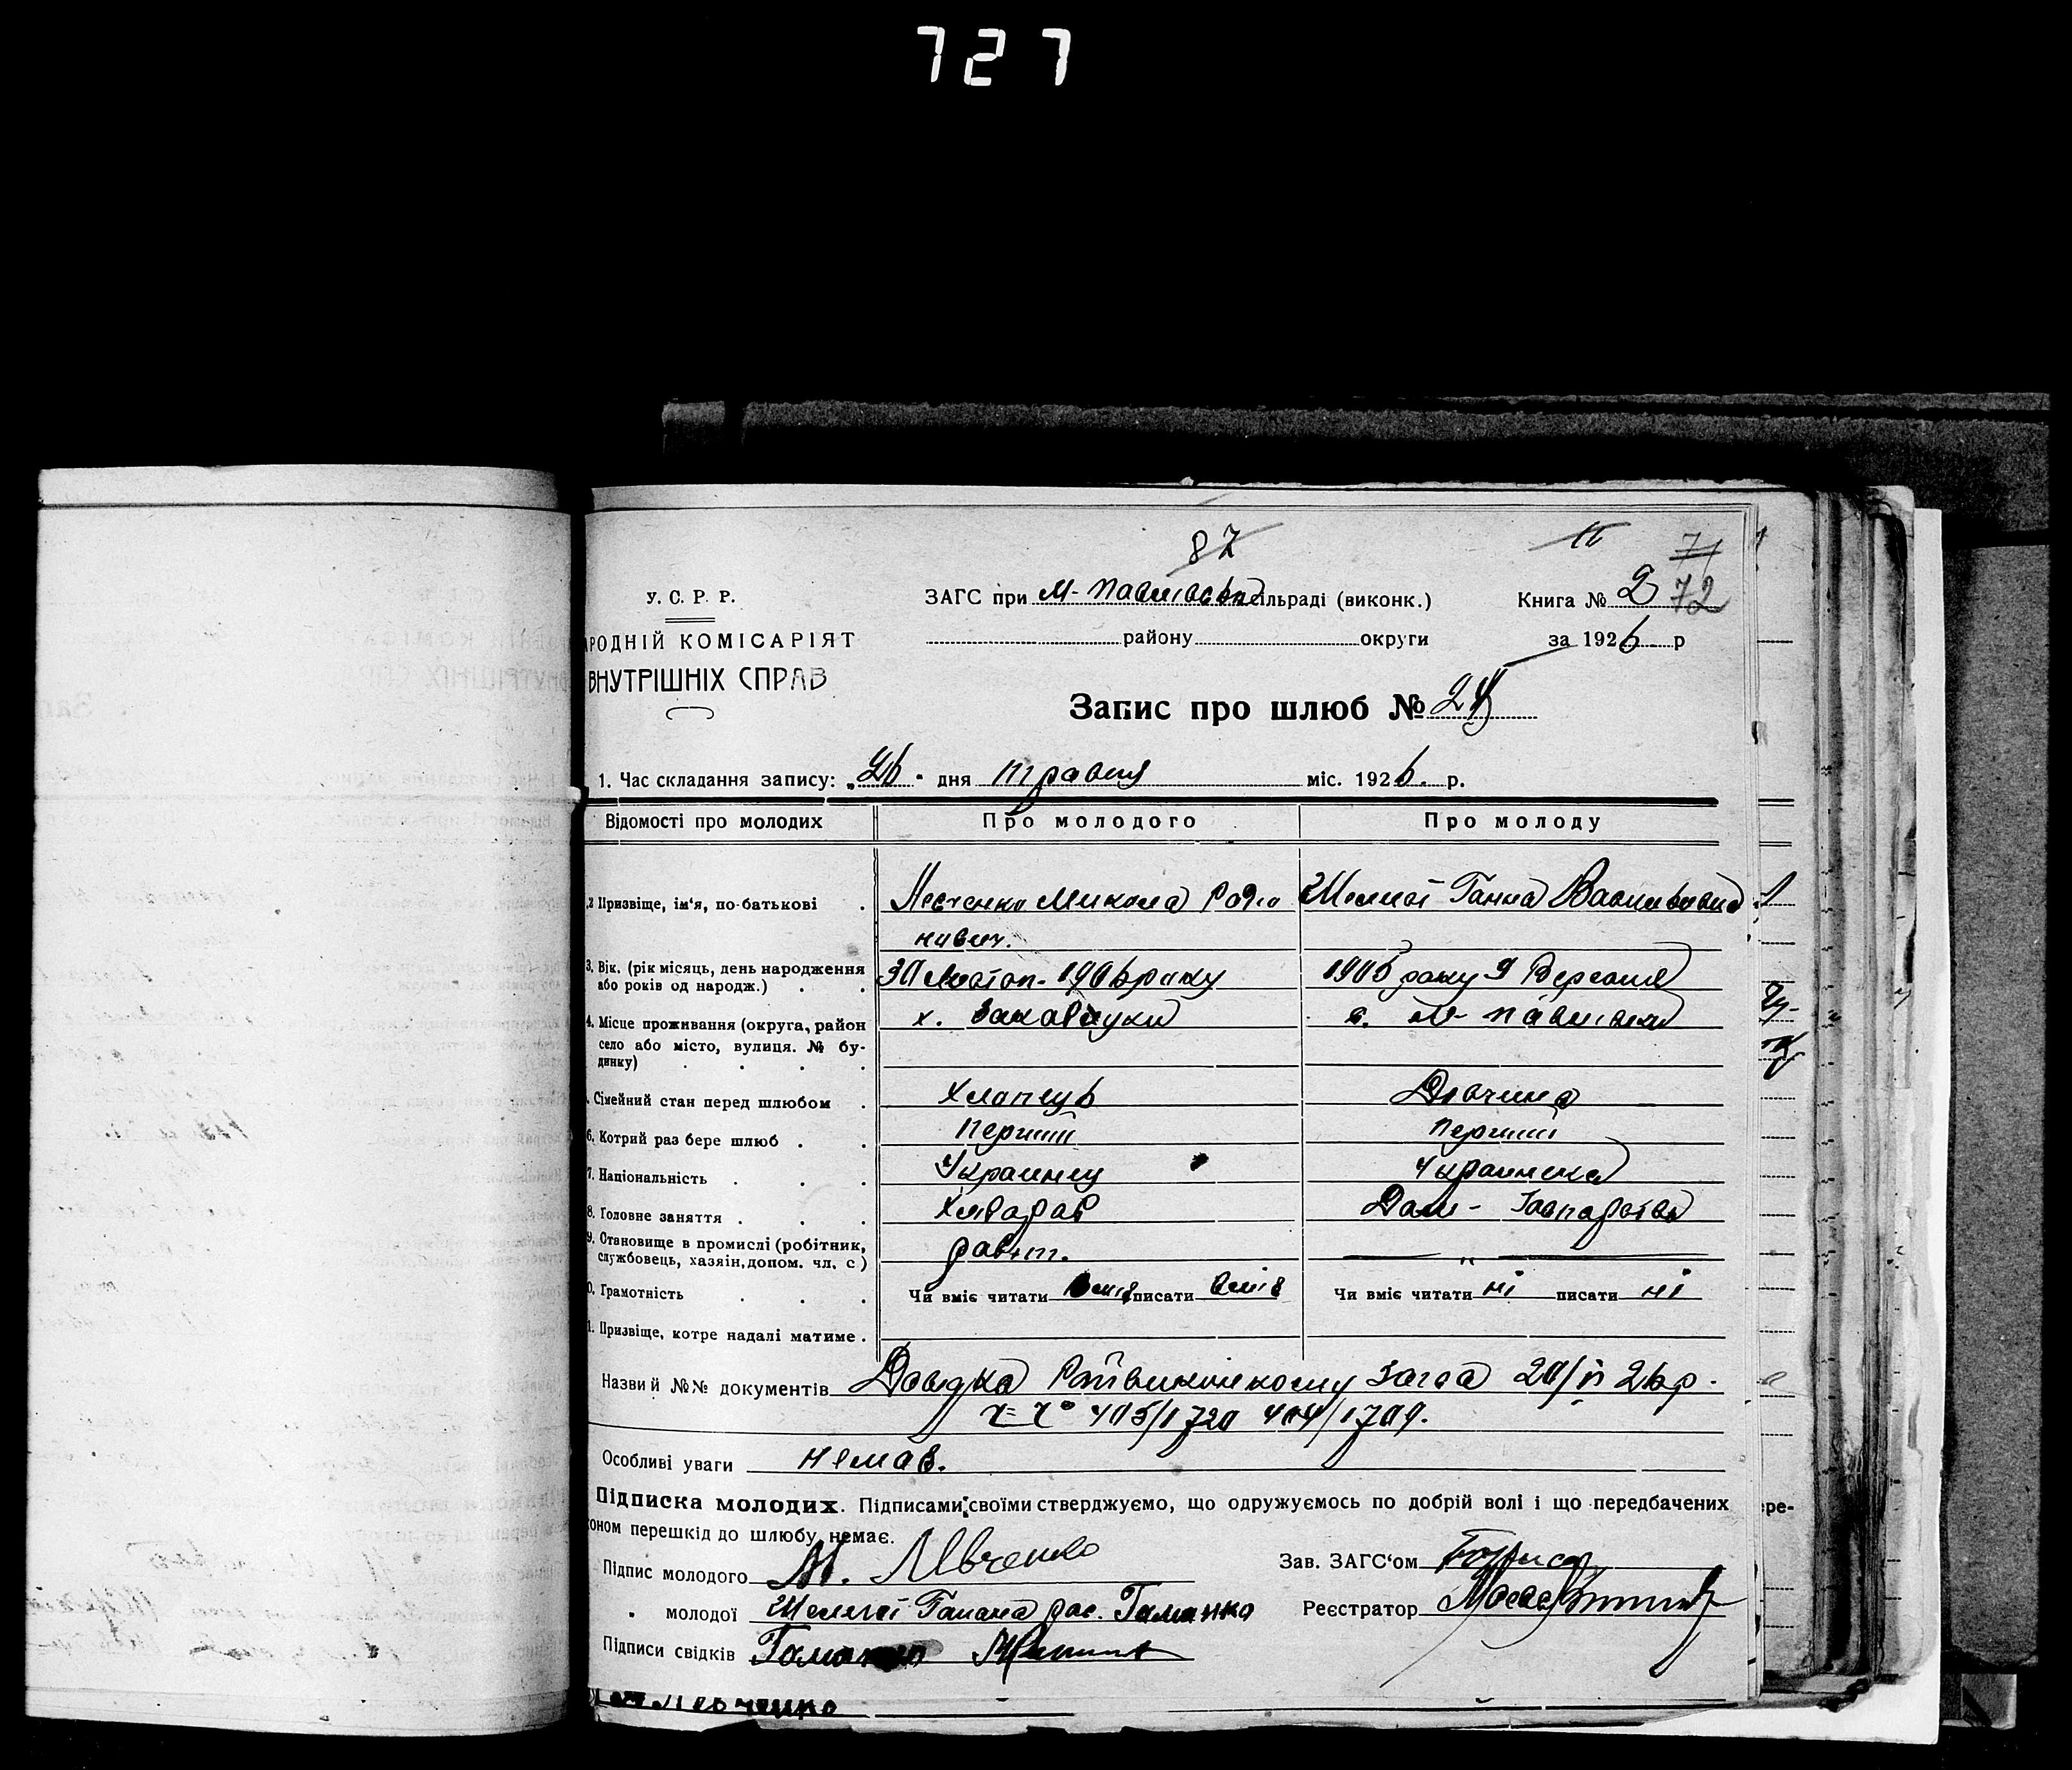 727
87
71
У. С. Р. Р. ЗАГС при М-Павлівській сільраді (виконк.) Книга № 2 72
РОДНІЙ КОМІСАРІЯТ района округи за 1926 р
ВНУТРІШНІХ СПРАВ
Запис про шлюб № 24
1. Час складання запису: „26" дня травня міс. 1926. р.
Відомості про молодих Про молодого Про молоду
2 Призвіще, ім'я, по-батькові . Левченко Микола Родіо Ганна Васильовна
нович.
3. Вік. (рік місяць, день народження 30 Листоп. 1906 року 1906 року 9 Вересня
або років од народж.) . .
4. Місце проживання (округа, район х. с. М-Павлівка
село або місто, вулиця. № бу-
динку) . . . .
. Сімейний стан перед шлюбом . Хлопець Дівчина
6. Котрий раз бере шлюб . . Перший Перший
7. Національність . . . Украинец Украинска
8. Головне заняття . . . Хлібороб Дом- Господарство
9. Становище в промислі (робітник, робіт. "
службовець, хазяін, допом. чл. с)
0. Грамотність . . . Чи вміє читати вміє писати вміє Чи вміє читати ні писати ні
1. Призвіще, котре надалі матиме .
Назви й №№ документів Довідка Райвиконкому Загса 20/ 26 р.
405/1720 404/1709.
Особливі уваги немає.
Підписка молодих. Підписами своїми стверджуємо, що одружуємось по добрій волі і що передбачених
коном перешкід до шлюбу немає.
Підпис молодого М. Левченко Зав. ЗАГС'ом
" молодої Гаманко Реєстратор
Підписи свідків Гаманко
Левченко